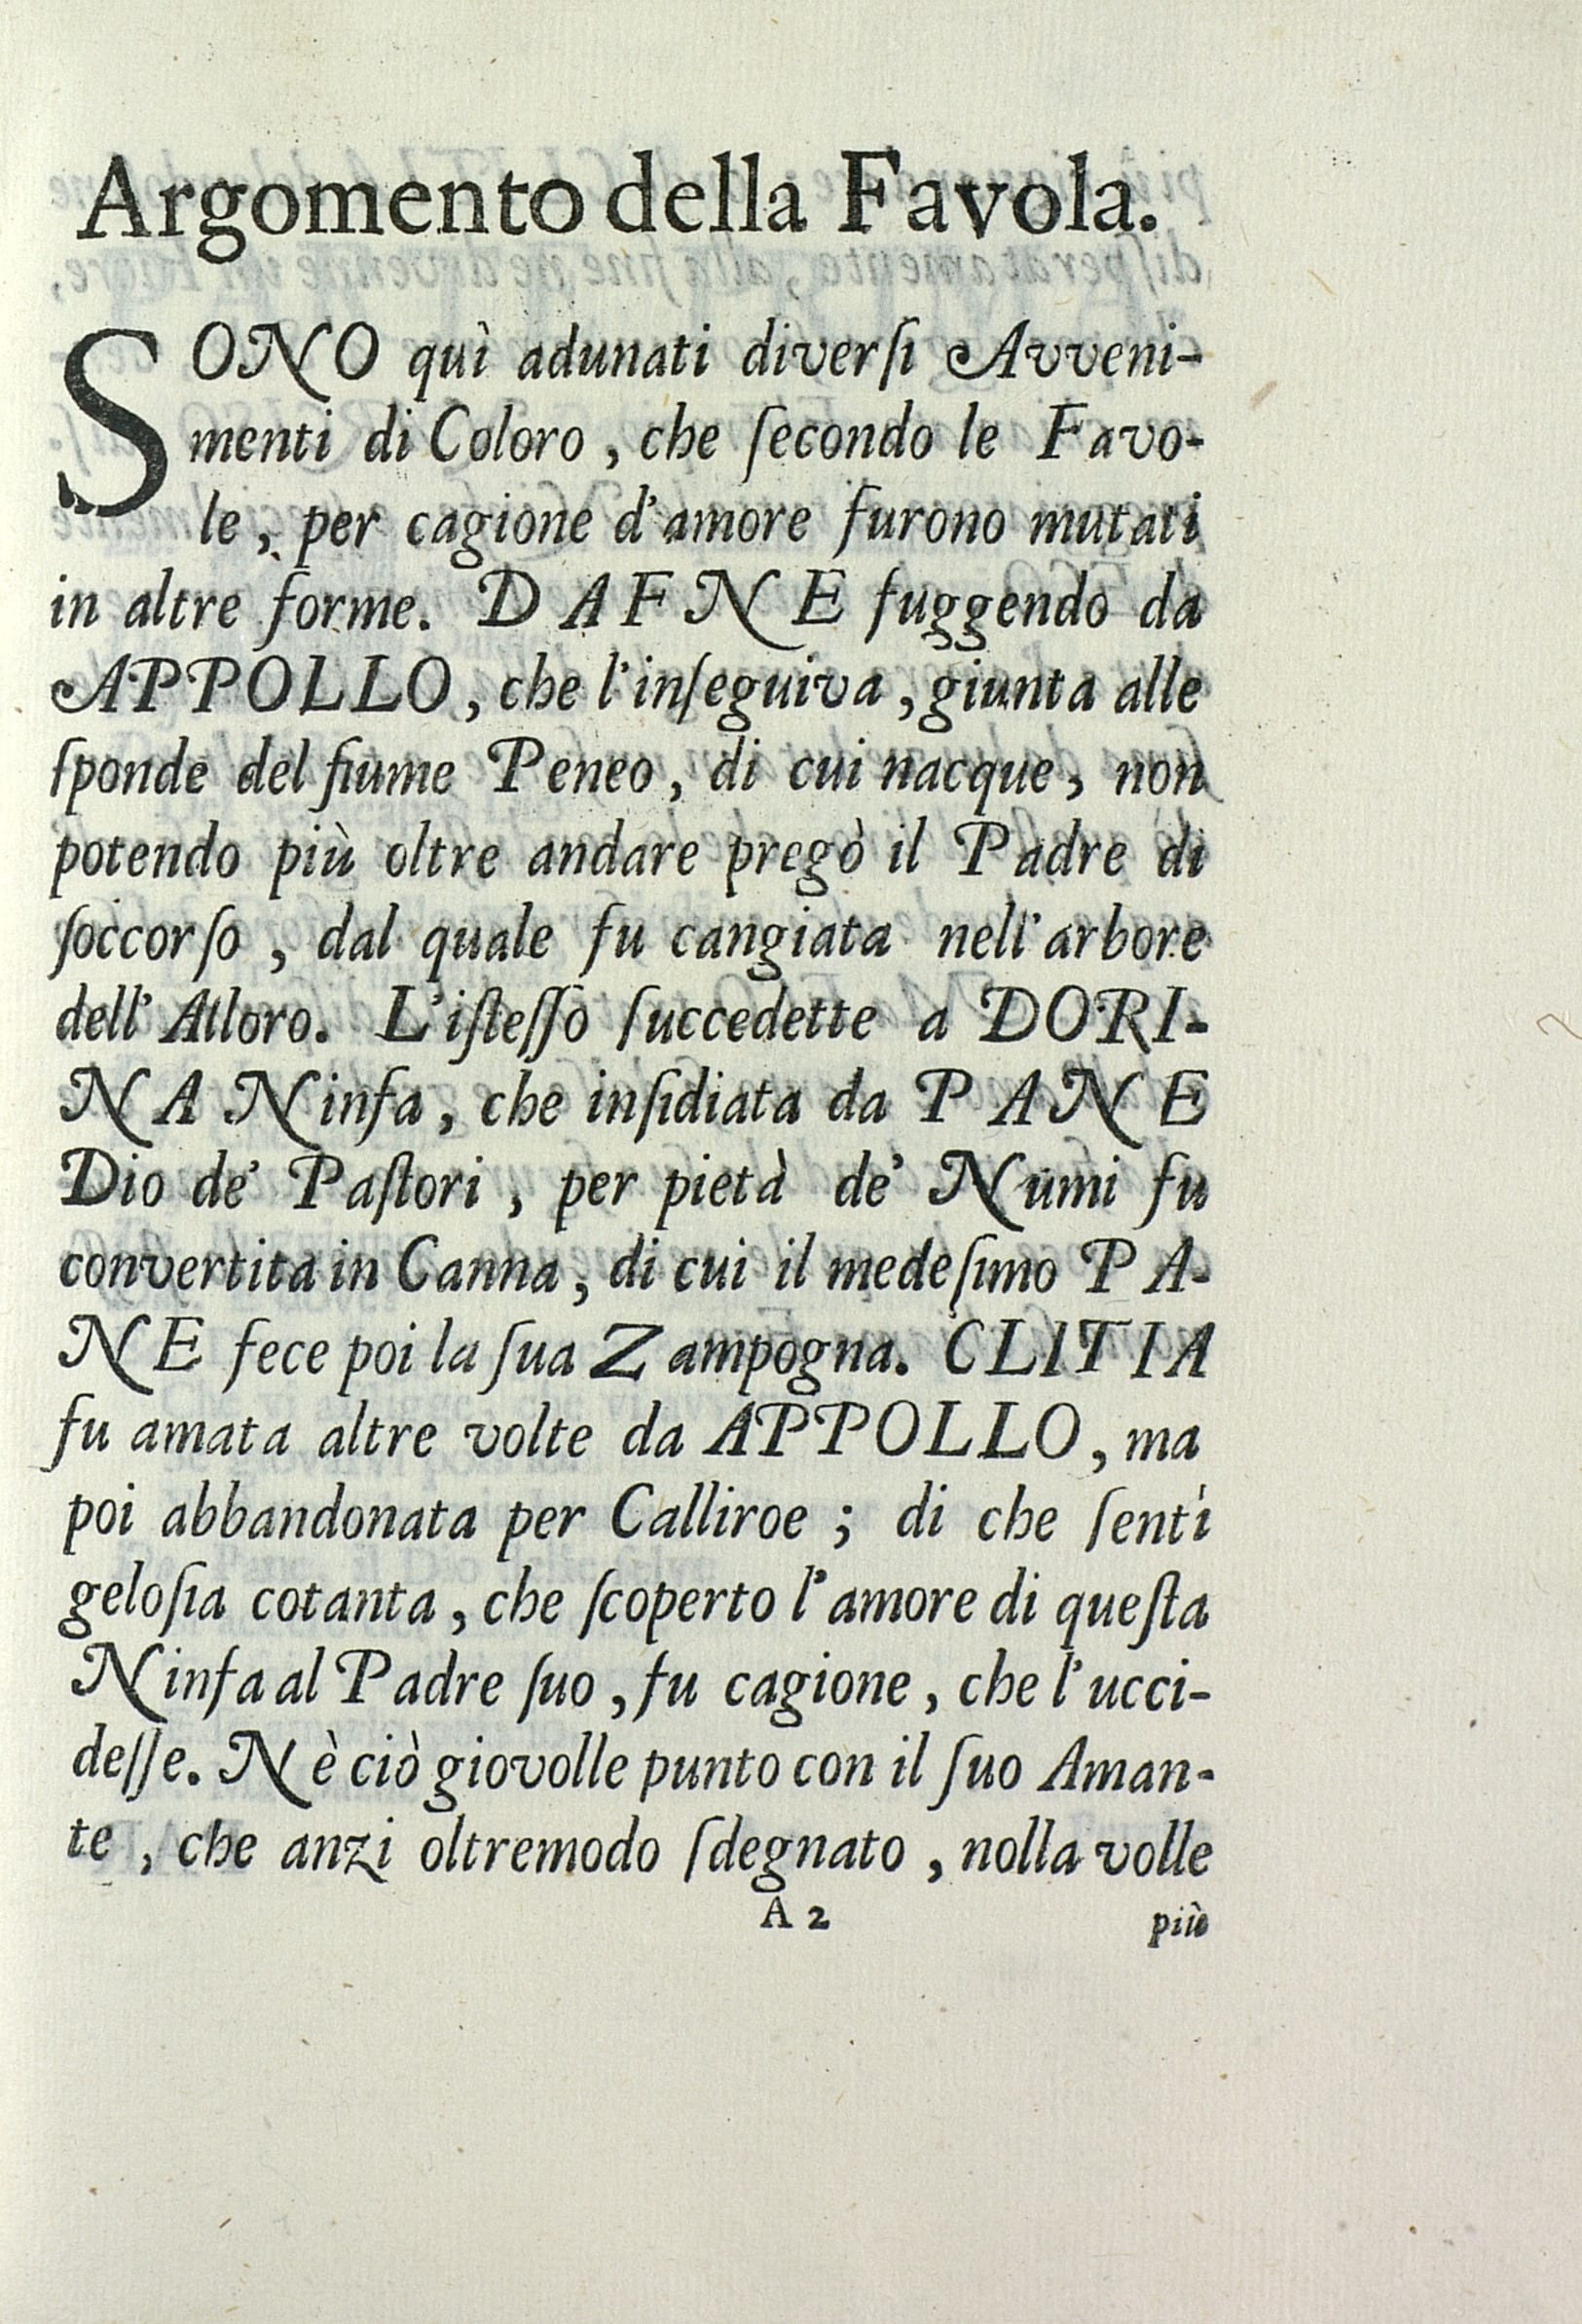 Argomento della Favola.
SONO quì adunati diverſi Avveni-
menti di Coloro, che ſecondo le Favo-
le, per cagione d'amore furono mutati
in altre forme. DAFNE fuggendo da
APPOLLO, che l'inſeguiva, giunta alle
ſponde del fiume Peneo, di cui nacque, non
potendo più oltre andare pregò il Padre di
ſoccorſo, dal quale fu cangiata nell'arbore
dell'Alloro. L'iſteſſo ſuccedette a DORI-
NA Ninfa, che inſidiata da PANE
Dio de' Paſtori, per pietà de' Numi fu
convertita in Canna, di cui il medeſimo PA-
NE fece poi la ſua Zampogna. CLITIA
fu amata altre volte da APPOLLO, ma
poi abbandonata per Calliroe; di che ſentì
geloſia cotanta, che ſcoperto l'amore di queſta
Ninfa al Padre ſuo, fu cagione, che l'ucci-
deſſe. Nè ciò giovolle punto con il ſuo Aman-
te, che anzi oltremodo ſdegnato, nolla volle
A 2
più